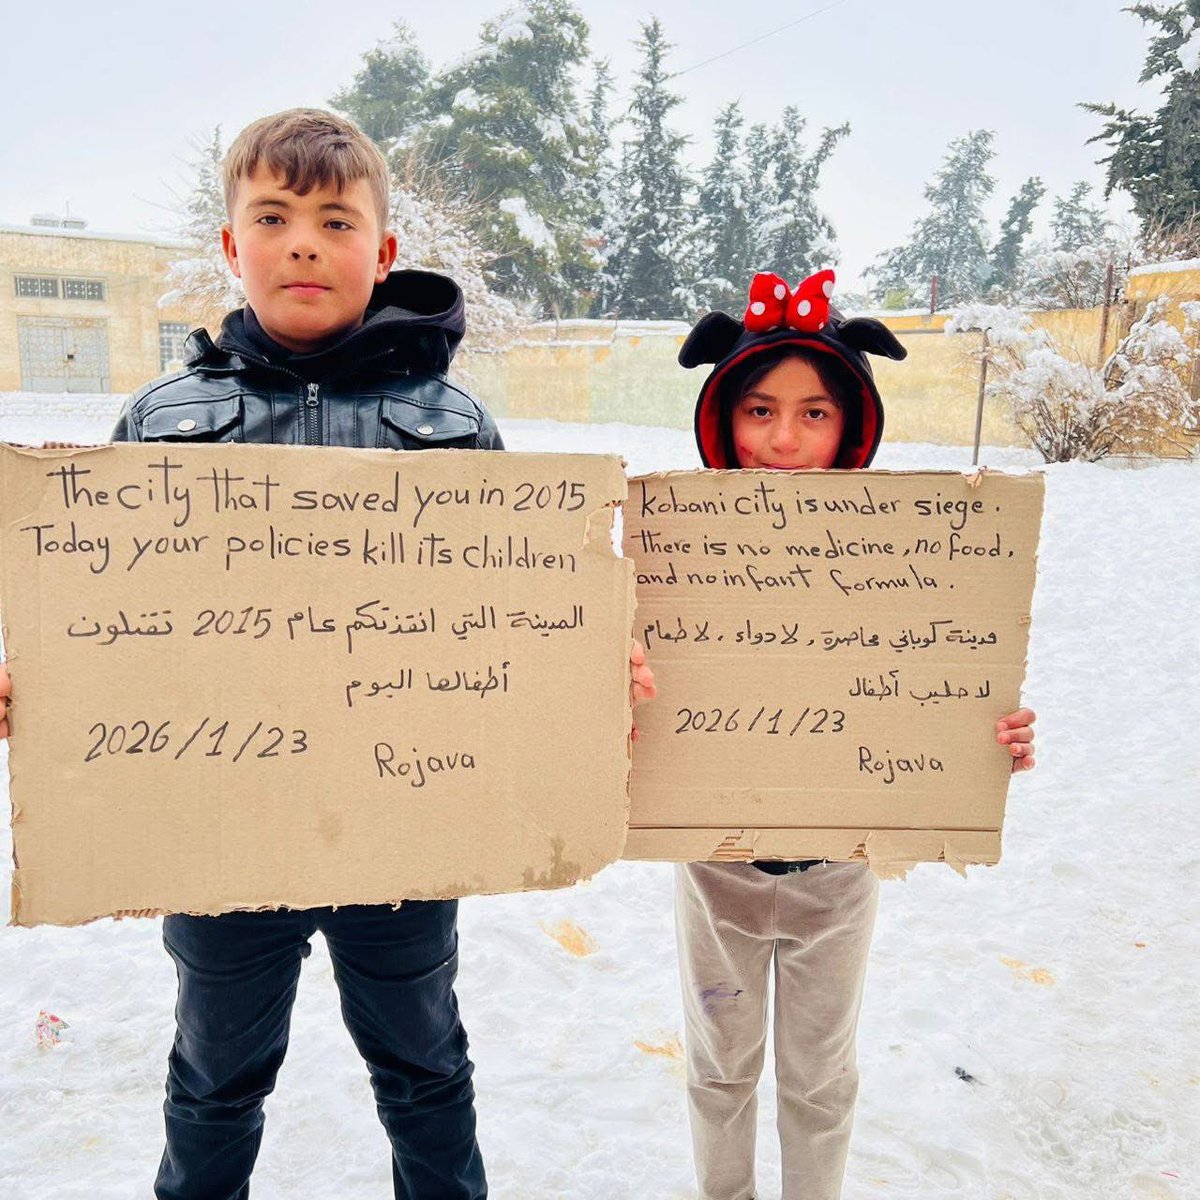 The city that saved you in 2015
Today your policies kill its children
المدينة التي انقذتكم عام 2015 تقتلون
أطفالها اليوم
2026/1/23
Rojava
kobani city is under siege.
there is no medicine, no food,
and no infant formula.
مدينة كوباني محاصرة، لا دواء، لا طعام
لا حليب أطفال
2026/1/23
Rojava